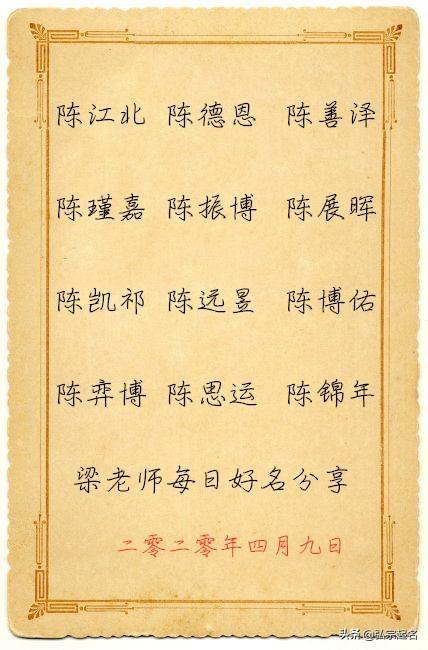 陈江北 陈德恩 陈善泽
陈瑾嘉 陈振博 陈展晖
陈凯祁 陈远昱 陈博佑
陈弈博 陈思运 陈锦年
梁老师每日好名分享
二零二零年四月九日
头条 @弘宗起名